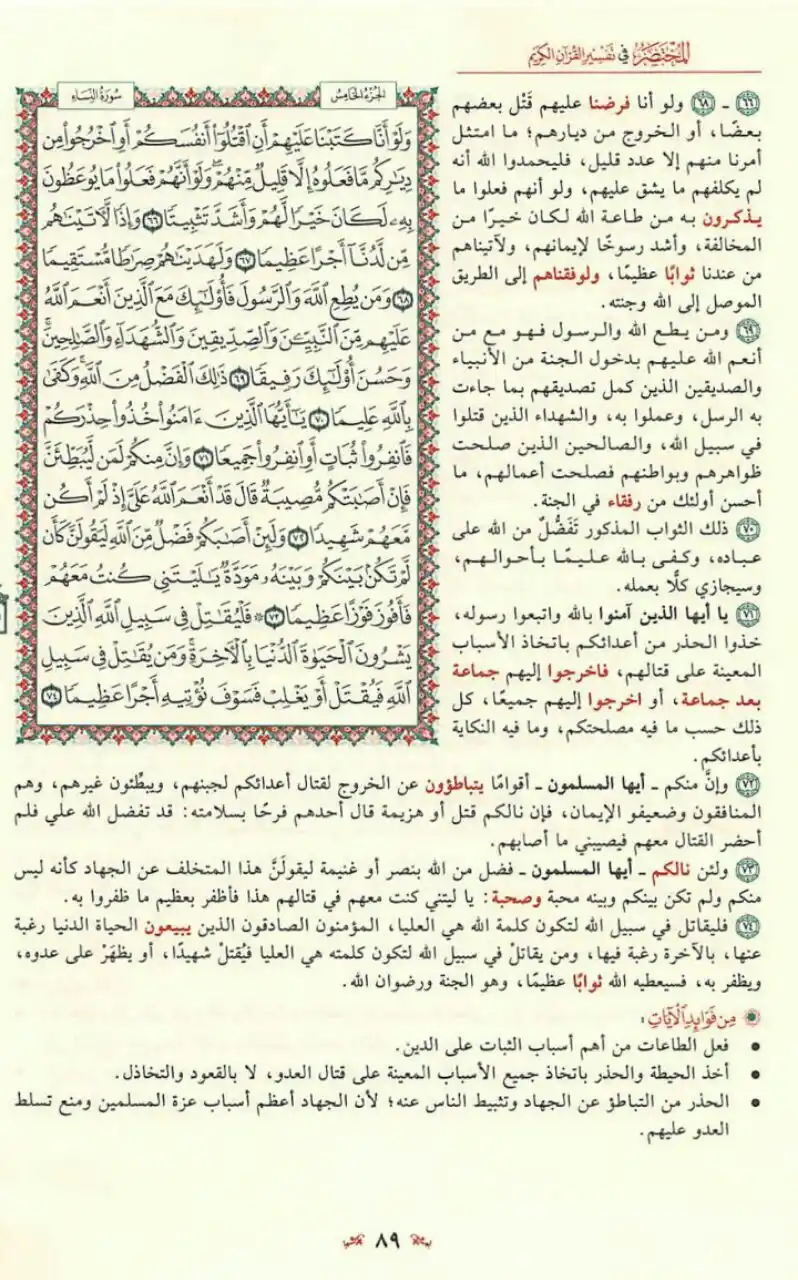 المختصر في تفسير القرآن الكريم
سورة النساء
الجزء الخامس
وَلَوْ أَنَّا كَتَبْنَا عَلَيْهِمْ أَنِ ٱقْتُلُوٓا۟ أَنفُسَكُمْ أَوِ ٱخْرُجُوا۟ مِن
دِيَـٰرِكُم مَّا فَعَلُوهُ إِلَّا قَلِيلٌ مِّنْهُمْ ۖ وَلَوْ أَنَّهُمْ فَعَلُوا۟ مَا يُوعَظُونَ
بِهِۦ لَكَانَ خَيْرًا لَّهُمْ وَأَشَدَّ تَثْبِيتًا ٦٦ وَإِذًا لَّـَٔاتَيْنَـٰهُم
مِّن لَّدُنَّآ أَجْرًا عَظِيمًا ٦٧ وَلَهَدَيْنَـٰهُمْ صِرَٰطًا مُّسْتَقِيمًا
٦٨ وَمَن يُطِعِ ٱللَّهَ وَٱلرَّسُولَ فَأُو۟لَـٰٓئِكَ مَعَ ٱلَّذِينَ أَنْعَمَ ٱللَّهُ
عَلَيْهِم مِّنَ ٱلنَّبِيِّـۧنَ وَٱلصِّدِّيقِينَ وَٱلشُّهَدَآءِ وَٱلصَّـٰلِحِينَ ۚ
وَحَسُنَ أُو۟لَـٰٓئِكَ رَفِيقًا ٦٩ ذَٰلِكَ ٱلْفَضْلُ مِنَ ٱللَّهِ ۚ وَكَفَىٰ
بِٱللَّهِ عَلِيمًا ٧٠ يَـٰٓأَيُّهَا ٱلَّذِينَ ءَامَنُوا۟ خُذُوا۟ حِذْرَكُمْ
فَٱنفِرُوا۟ ثُبَاتٍ أَوِ ٱنفِرُوا۟ جَمِيعًا ٧١ وَإِنَّ مِنكُمْ لَمَن لَّيُبَطِّئَنَّ
فَإِنْ أَصَـٰبَتْكُم مُّصِيبَةٌ قَالَ قَدْ أَنْعَمَ ٱللَّهُ عَلَىَّ إِذْ لَمْ أَكُن
مَّعَهُمْ شَهِيدًا ٧٢ وَلَئِنْ أَصَـٰبَكُمْ فَضْلٌ مِّنَ ٱللَّهِ لَيَقُولَنَّ كَأَن
لَّمْ تَكُنۢ بَيْنَكُمْ وَبَيْنَهُۥ مَوَدَّةٌ يَـٰلَيْتَنِى كُنتُ مَعَهُمْ
فَأَفُوزَ فَوْزًا عَظِيمًا ٧٣ ۞ فَلْيُقَـٰتِلْ فِى سَبِيلِ ٱللَّهِ ٱلَّذِينَ
يَشْرُونَ ٱلْحَيَوٰةَ ٱلدُّنْيَا بِٱلْـَٔاخِرَةِ ۚ وَمَن يُقَـٰتِلْ فِى سَبِيلِ
ٱللَّهِ فَيُقْتَلْ أَوْ يَغْلِبْ فَسَوْفَ نُؤْتِيهِ أَجْرًا عَظِيمًا ٧٤
٦٦ - ٦٨ ولو أنا فرضنا عليهم قَتْل بعضهم
بعضًا، أو الخروج من ديارهم؛ ما امتثل
أمرنا منهم إلا عدد قليل، فليحمدوا الله أنه
لم يكلفهم ما يشق عليهم، ولو أنهم فعلوا ما
يذكرون به من طاعة الله لكان خيرًا من
المخالفة، وأشد رسوخًا لإيمانهم، ولآتيناهم
من عندنا ثوابًا عظيمًا، ولوفقناهم إلى الطريق
الموصل إلى الله وجنته.
٦٩ ومن يطع الله والرسول فهو مع من
أنعم الله عليهم بدخول الجنة من الأنبياء
والصديقين الذين كمل تصديقهم بما جاءت
به الرسل، وعملوا به، والشهداء الذين قتلوا
في سبيل الله، والصالحين الذين صلحت
ظواهرهم وبواطنهم فصلحت أعمالهم، ما
أحسن أولئك من رفقاء في الجنة.
٧٠ ذلك الثواب المذكور تَفَضُّلٌ من الله على
عباده، وكفى بالله عليمًا بأحوالهم،
وسيجازي كلًّا بعمله.
٧١ يا أيها الذين آمنوا بالله واتبعوا رسوله،
خذوا الحذر من أعدائكم باتخاذ الأسباب
المعينة على قتالهم، فاخرجوا إليهم جماعة
بعد جماعة، أو اخرجوا إليهم جميعًا، كل
ذلك حسب ما فيه مصلحتكم، وما فيه النكاية
بأعدائكم.
٧٢ وإنَّ منكم - أيها المسلمون - أقوامًا يتباطؤون عن الخروج لقتال أعدائكم لجبنهم، ويبطِّئون غيرهم، وهم
المنافقون وضعيفو الإيمان، فإن نالكم قتل أو هزيمة قال أحدهم فرحًا بسلامته: قد تفضل الله علي فلم
أحضر القتال معهم فيصيبني ما أصابهم.
٧٣ ولئن نالكم - أيها المسلمون - فضل من الله بنصر أو غنيمة ليقولَنَّ هذا المتخلف عن الجهاد كأنه ليس
منكم ولم تكن بينكم وبينه محبة وصحبة: يا ليتني كنت معهم في قتالهم هذا فأظفر بعظيم ما ظفروا به.
٧٤ فليقاتل في سبيل الله لتكون كلمة الله هي العليا، المؤمنون الصادقون الذين يبيعون الحياة الدنيا رغبة
عنها، بالآخرة رغبة فيها، ومن يقاتلْ في سبيل الله لتكون كلمته هي العليا فيُقتلْ شهيدًا، أو يظهَرْ على عدوه،
ويظفر به، فسيعطيه الله ثوابًا عظيمًا، وهو الجنة ورضوان الله.
من فوائد الآيات:
• فعل الطاعات من أهم أسباب الثبات على الدين.
• أخذ الحيطة والحذر باتخاذ جميع الأسباب المعينة على قتال العدو، لا بالقعود والتخاذل.
• الحذر من التباطؤ عن الجهاد وتثبيط الناس عنه؛ لأن الجهاد أعظم أسباب عزة المسلمين ومنع تسلط
العدو عليهم.
٨٩